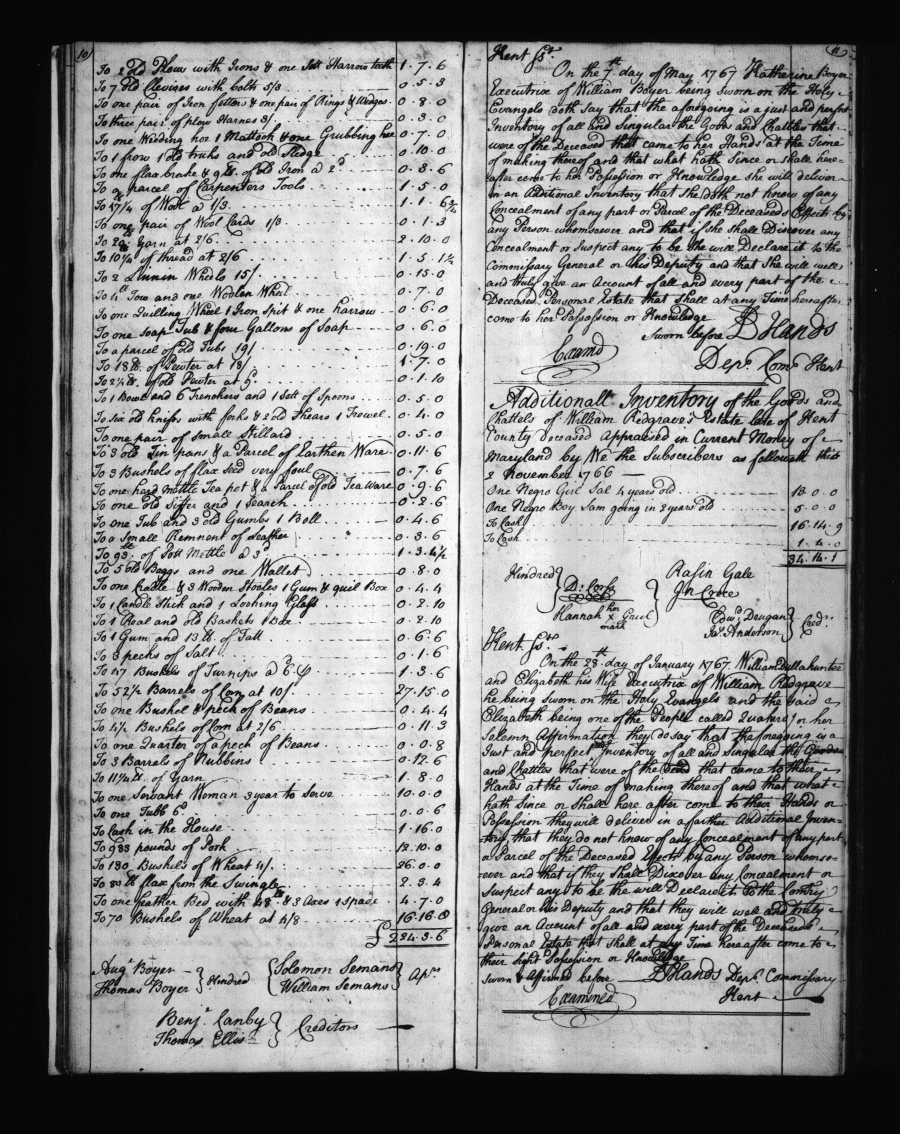 10
To 2 Old Plow with Irons & one Sett Harrow teeth 1.7.6
To 7 Old Clevises with bolts 5/3 0.5.3
To one pair of Iron fetters & one pair of Rings & Wedges 0.8.0
To three pair of plow Harnes 3/ 0.3.0
To one Weeding hoe 1 Mattock & one Grubbing hoe 0.7.0
To 1 frow 1 old truks and old Sledge 0.10.0
To one flax brake & 9 lb. of old Iron a 2d 0.3.6
To a parcel of Carpenters Tools 1.5.0
To 17 1/4 of Wool a 1/3 1.1.6 3/4
To one pair of Wool Cards 1/3 0.1.3
To 20 Yarn at 2/6 2.10.0
To 10 of thread at 2/6 1.5.1 1/2
To 2 Linnin Wheels 15/ 0.15.0
To Tow and one Woolen Wheel 0.7.0
To one Quilling Wheel 1 Iron Spit & one harrow 0.6.0
To one Soap Tub & four Gallons of Soap 0.6.0
To a parcel of old Tubs 19/ 0.19.0
To 18 lb. of Pewter at 18/ 1.7.0
To 2 1/2 lb. of old Pewter at 0.1.10
To 1 Bowl and 6 Trenchers and 1 Sett of Spoons 0.5.0
To Six old knifes with forks & 2 old Shears 1 Trowel 0.4.0
To one pair of Small Stillard 0.5.0
To 3 old Tin pans & a Parcel of Earthen Ware 0.11.6
To 3 Bushels of flax Seed very foul 0.7.6
To one hard Mettle Tea pot & a Parcel of old Tea Ware 0.9.6
To one old Sifter and 1 Search 0.2.6
To one Tub and 3 old Gumbs 1 Boll 0.4.6
To a Small Remnent of Leather 0.3.6
To 93 lb. of Pott Mettle a 3d 1.3.4 1/2
To 5 old Baggs and one Wallet 0.8.0
To one Cradle & 3 Wooden Stooles 1 Gum & quil Box 0.4.4
To 1 Candle Stick and 1 Looking Glass 0.2.10
To 1 Real and old Baskets 1 Box 0.2.10
To 1 Gum and 13 lb. of Fatt 0.6.6
To 3 pecks of Salt 0.1.6
To 27 Bushels of Turnips a 1.3.6
To 52 1/2 Barrels of Corn at 10/ 27.15.0
To one Bushel & peck of Beans 0.4.4
To 4 1/2 Bushels of Corn at 2/6 0.11.3
To one Quarter of a peck of Beans 0.0.8
To 3 Barrels of Nubbins 0.12.6
To 11 1/4 lb. of Yarn 1.8.0
To one Servant Woman 3 year to Serve 10.0.0
To one Tubb 6d 0.0.6
To Cash in the House 1.16.0
To 983 pounds of Pork 13.10.0
To 130 Bushels of Wheat 4/ 26.0.0
To 20 lb flax from the Swingle 2.3.4
To one feather Bed with 48 lb & 3 Axes 1 Spade 4.7.0
To 70 Bushels of Wheat at 4/8 16.16.0
£ 224.3.6
Augt Boyer
Thomas Boyer } Kindred { Solomon Semans
William Semans } Aprs
Benj. Canby
Thomas Ellis } Creditors
11
Kent Ss.t
On the 7th day of May 1767 Katherine Boyer
Executrix of William Boyer being Sworn on the Holy
Evangels doth Say that the aforegoing is a just and perfect
Inventory of all and Singular the Goods and Chattles that
were of the Deceased that came to her Hands at the Time
of making thereof and that what hath Since or Shall here
after come to her Possession or Knowledge she will deliver
in an Additional Inventory that She doth not know of any
Concealment of any part or Parcel of the Deceaseds Effects by
any Person whomsoever and that if she Shall Discover any
Concealment or Suspect any to be She will Declare it to the
Commissary General or his Deputy and that She will well
and truly give an Account of all and every part of the
Deceaseds Personal Estate that Shall at any Time hereafter
come to her Possession or Knowledge
Sworn before D Hands
Examd Depy Comy Kent
Additionall Inventory of the Goods and
Chattels of William Redgrave's Estate late of Kent
County Deceased Appraised in Current Money of
Maryland by We the Subscribers as followeth this
2 November 1766
One Negro Girl Sal 4 years old 13.0.0
One Negro Boy Sam going in 2 years old 5.0.0
To Cash 16.14.9
To Cash 1.4.0
34.14.1
Kindred }
Hannah her x mark } Rasin Gale
Jn Cooce
Edwd Deugan
Jas Anderson } Credrs
Kent Ss.t
On the 28th day of January 1767 William Dullahuntee
and Elizabeth his Wife Executrix of William Redgrave
he being Sworn on the Holy Evangels and the Said
Elizabeth being one of the People called Quakers on her
Solemn Affirmation they do say that the foregoing is a
Just and perfect Inventory of all and Singular the Goods
and Chattles that were of the Decd that came to their
Hands at the Time of making thereof and that what
hath Since or Shall here after come to their Hands or
Possession they will deliver in a farther Additional Inven-
tory that they do not know of any Concealment of any part
or Parcel of the Deceased Effects by any Person whomso-
ever and that if they Shall Discover any Concealment or
Suspect any to be the will Declare it to the Comiry
General or his Deputy and that they will well and truly
give an Account of all and every part of the Deceaseds
Personal Estate that Shall at any Time hereafter come to
their Sight Possession or Knowledge
Sworn & Affirmed before D Hands Depy Commissary
Examined Kent